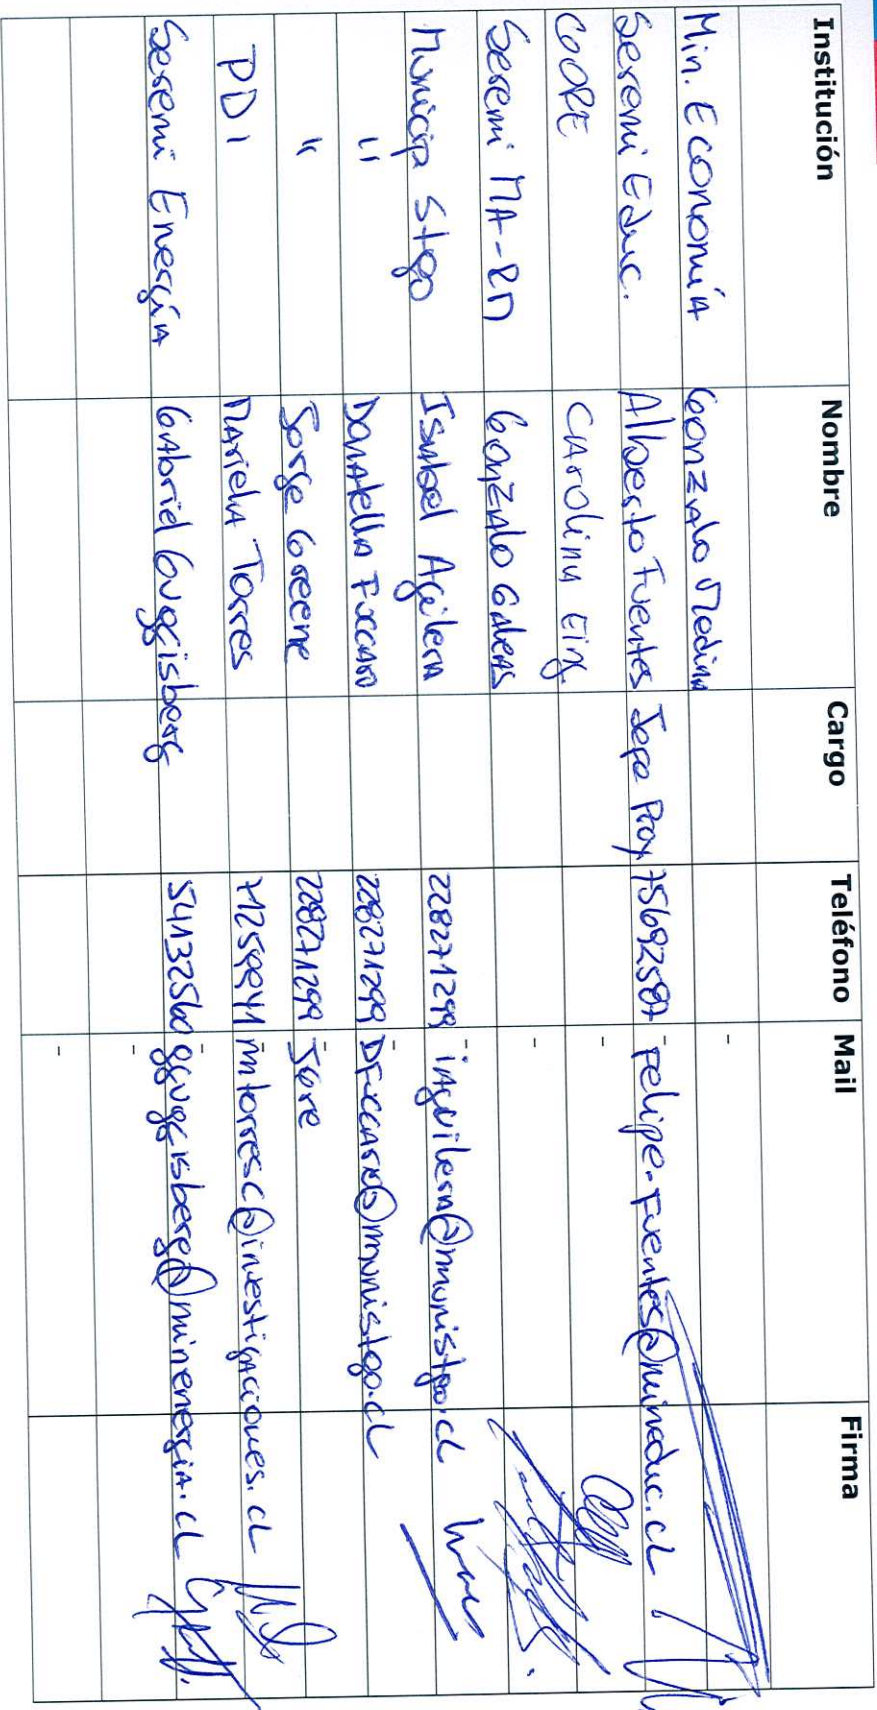 Institución Nombre Cargo Teléfono Mail Firma
Min. Economía Gonzalo Medina - 
Seremi Educ. Alberto Fuentes Jefe Proy. 75692587 - felipe.fuentes@mineduc.cl
CORE Carolina -
Seremi MA-RM Gonzalo -
Municip Stgo Isabel Agilera 228271299 - iaguilera@munistgo.cl
" Donatella Fuccaro 228271299 - DFuccaro@munistgo.cl
" Jorge Greene 228271299 -
PDI Mariela Torres - mtorresc@investigaciones.cl
Seremi Energía Gabriel Guggisberg 54132560 - gguggisberg@minenergia.cl
-
-